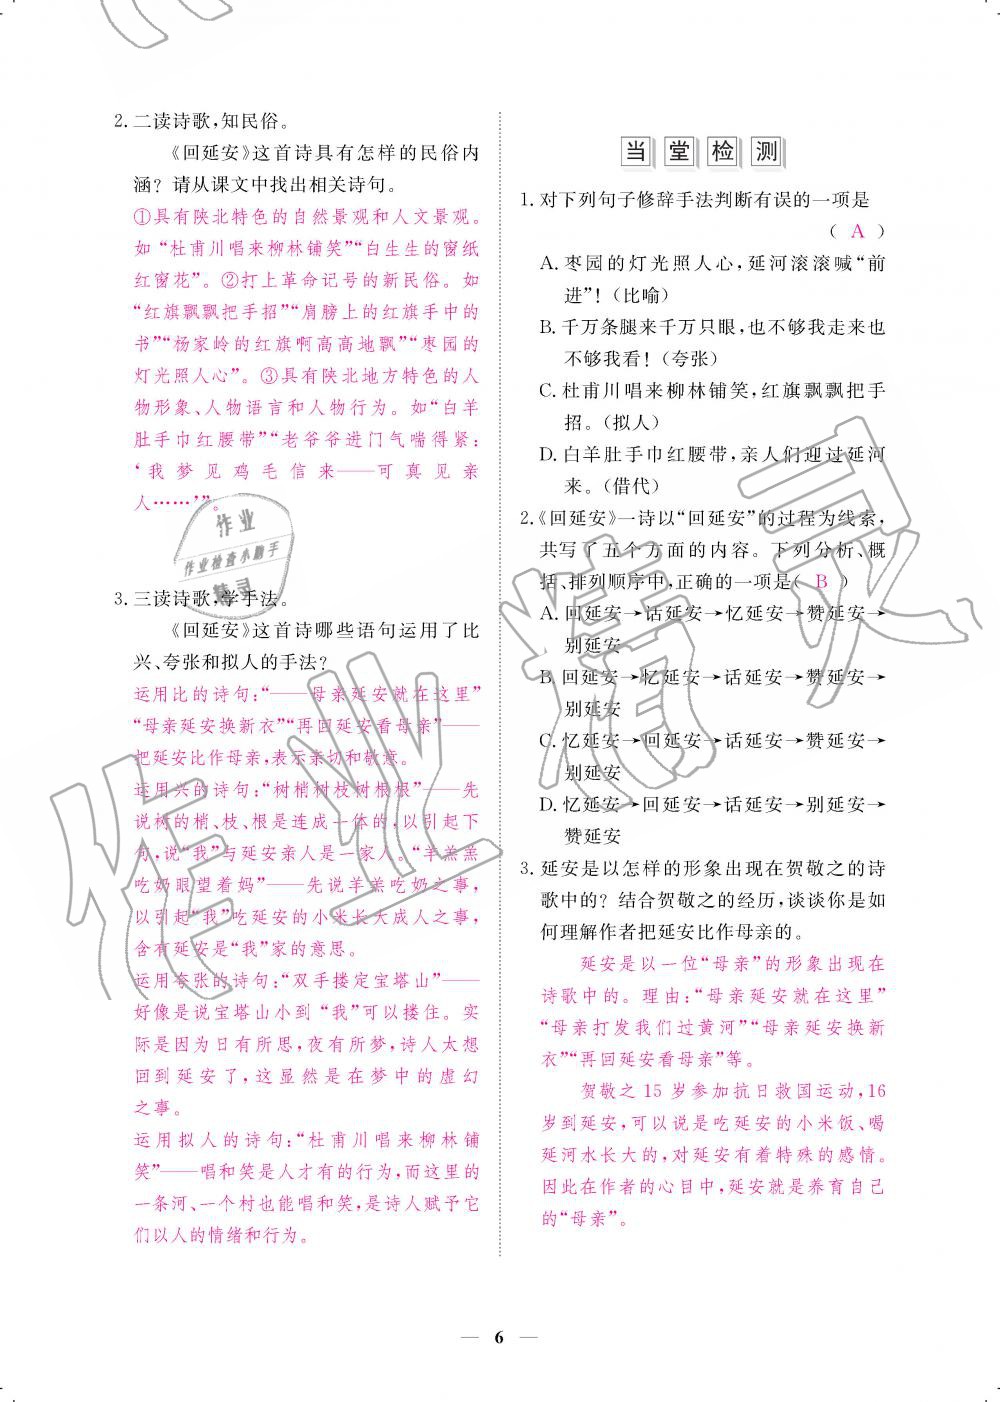 2. 二读诗歌,知民俗。
《回延安》这首诗具有怎样的民俗内
涵? 请从课文中找出相关诗句。
①具有陕北特色的自然景观和人文景观。
如“杜甫川唱来柳林铺笑”“白生生的窗纸
红窗花”。②打上革命记号的新民俗。如
“红旗飘飘把手招”“肩膀上的红旗手中的
书”“杨家岭的红旗啊高高地飘”“枣园的
灯光照人心”。③具有陕北地方特色的人
物形象、人物语言和人物行为。如“白羊
肚手巾红腰带”“老爷爷进门气喘得紧:
‘我梦见鸡毛信来——可真见亲
人……’”。
作业
作业检查小助手
精灵
3. 三读诗歌,学手法。
《回延安》这首诗哪些语句运用了比
兴、夸张和拟人的手法?
运用比的诗句:“——母亲延安就在这里”
“母亲延安换新衣”“再回延安看母亲”——
把延安比作母亲,表示亲切和敬意。
运用兴的诗句:“树梢树枝树根根”——先
说树的梢、枝、根是连成一体的,以引起下
句,说“我”与延安亲人是一家人。“羊羔羔
吃奶眼望着妈”——先说羊羔吃奶之事,
以引起“我”吃延安的小米长大成人之事,
含有延安是“我”家的意思。
运用夸张的诗句:“双手搂定宝塔山”——
好像是说宝塔山小到“我”可以搂住。实
际是因为日有所思,夜有所梦,诗人太想
回到延安了,这显然是在梦中的虚幻
之事。
运用拟人的诗句:“杜甫川唱来柳林铺
笑”——唱和笑是人才有的行为,而这里的
一条河、一个村也能唱和笑,是诗人赋予它
们以人的情绪和行为。
当堂检测
1. 对下列句子修辞手法判断有误的一项是
( A )
A. 枣园的灯光照人心,延河滚滚喊“前
进”!(比喻)
B. 千万条腿来千万只眼,也不够我走来也
不够我看!(夸张)
C. 杜甫川唱来柳林铺笑,红旗飘飘把手
招。(拟人)
D. 白羊肚手巾红腰带,亲人们迎过延河
来。(借代)
2.《回延安》一诗以“回延安”的过程为线索,
共写了五个方面的内容。下列分析、概
括、排列顺序中,正确的一项是( B )
A. 回延安→话延安→忆延安→赞延安→
别延安
B. 回延安→忆延安→话延安→赞延安→
别延安
C. 忆延安→回延安→话延安→赞延安→
别延安
D. 忆延安→回延安→话延安→别延安→
赞延安
3. 延安是以怎样的形象出现在贺敬之的诗
歌中的? 结合贺敬之的经历,谈谈你是如
何理解作者把延安比作母亲的。
延安是以一位“母亲”的形象出现在
诗歌中的。理由:“母亲延安就在这里”
“母亲打发我们过黄河”“母亲延安换新
衣”“再回延安看母亲”等。
贺敬之 15 岁参加抗日救国运动,16
岁到延安,可以说是吃延安的小米饭、喝
延河水长大的,对延安有着特殊的感情。
因此在作者的心目中,延安就是养育自己
的“母亲”。
作业精灵
— 6 —